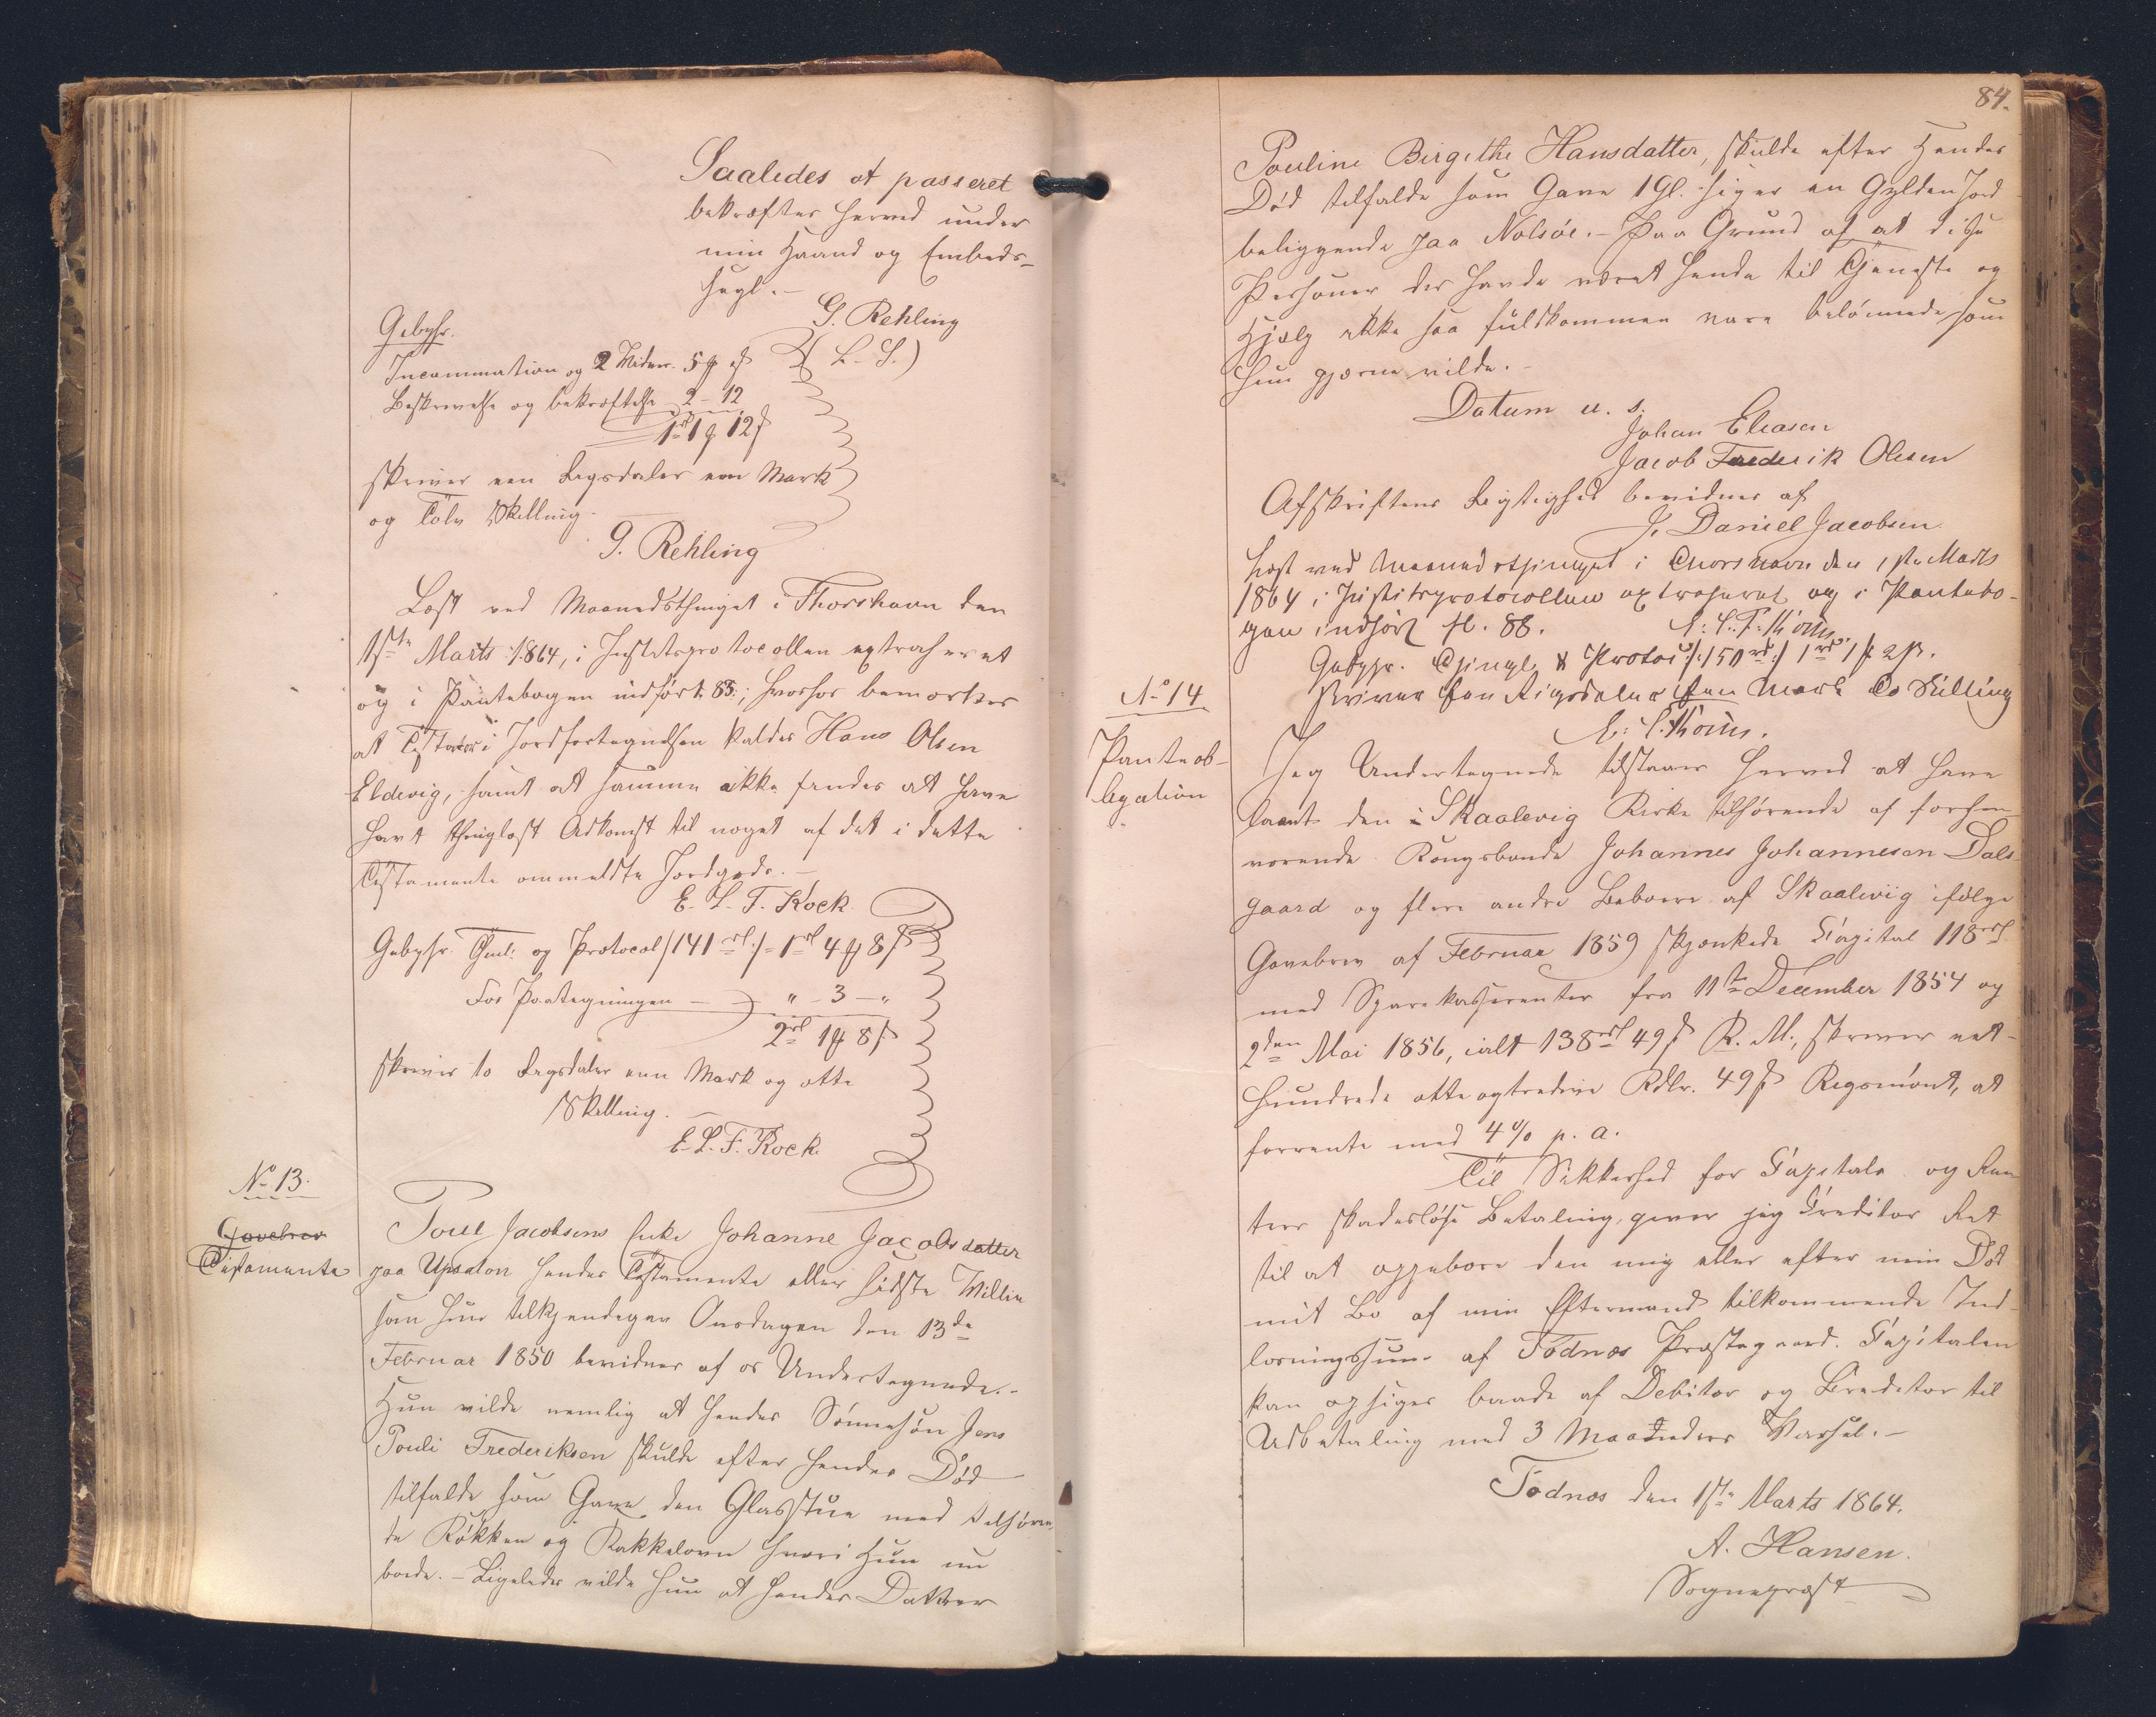 Saaledes at passeret
bekræftes herved under
min Haand og Embeds-
segl.-
G. Rehling
(L. S.)
Gebyhr.
Incammation og 2 Vidner. 5 ₰ ß
Beskrivelse og bekræftelse 2 - 12
1rd 1 ₰ 12ß
skriver een Rigsdaler een Mark
og Tolv Skilling.
G. Rehling
Læst ved Maanedsthinget i Thorshavn den
1ste Marts 1864, i Justitsprotocollen extraheret
og i Pantebogen indført. 83.; hvorhos bemærkes
at Testator i Jordfortegnelsen kaldes Hans Olsen
Eldevig, samt at samme ikke findes at have
havt thinglæst Adkomst til noget af det i dette
Testamente ommeldte Jordgods.-
E. L. T. Kock.
Gebyhr. Thinl: og Protocol /141 rd:/ = 1 rd 4 ₰ 8 ß
For Paategningen - " - 3 - "
2 rd 1 ₰ 8 ß
skriver to Rigsdaler een Mark og otte
Skilling.
E. L. F. Kock.
No 13.
Gavebrev
Testamente
Poul Jacobsens Enke Johanne Jacobsdatter
paa Upsalon hendes Testamente eller sidste Villie
som hun tilkjendegav Onsdagen den 13de
Februar 1850 bevidnes af os Undertegnede.-
Hun vilde nemlig at hendes Sønnesøn Jens
Pouli Frederiksen skulde efter hendes Død
tilfalde som Gave den Glasstue med tilhøren-
de Køkken og Kakkelovn hvori hun nu
boede. - Ligeledes vilde hun at hendes Datter
84.
Pouline Birgithe Hansdatter, skulde efter Hendes
Død tilfalde som Gave 1 Gl. siger en Gylden Jord
beliggende paa Nolsøe. - Paa Grund af at disse
Personer der havde været hende til Tjeneste og
Hjælp ikke saa fuldkommen vare belønnede som
hun gjærne vilde.-
Datum u. s.
Johan Eliasen
Jacob Frederik Olesen
Afskriftens Rigtighed bevidnes af
J. Daniel Jacobsen.
Læst ved Maanedsthinget i Thorshavn den 1ste Marts
1864, i Justitsprotocollen extraheret og i Pantebo-
gen indført fl. 88.
Gebyhr. Thingl. & Protoc /:150 rd:/ 1 rd 1 ₰ 2 ß.
skriver Een Rigsdaler Een Mark To Skilling
No 14
Panteob-
ligation
Jeg Undertegnede tilstaaer herved at have
laant den i Skaalevig Kirke tilhørende af forhen-
værende Kongsbonde Johannes Johannesen Dals-
gaard og flere andre Beboere af Skaaleviig ifølge
Gavebrev af Februar 1859 skjænkede Capital 118 rd
med Sparekasserenter fra 11te December 1854 og
2den Mai 1856, ialt 138 rd 49 ß R. M., skriver eet-
hundrede otte og tredive Rdlr. 49 ß Rigsmønt, at
forrente med 4 % p. a.
Til Sikkerhed for Capitals og Ren-
ters skadesløse Betaling, giver jeg Creditor Ret
til at oppebære den mig eller efter min Død
mit Bo af min Eftermand tilkommende Ind-
løsningssum af Todnæs Præstegaard. Capitalen
kan opsiges baade af Debitor og Creditor til
Udbetaling med 3 Maaneders Varsel.-
Todnæs den 1ste Marts 1864.
A. Hansen.
Sognepræst